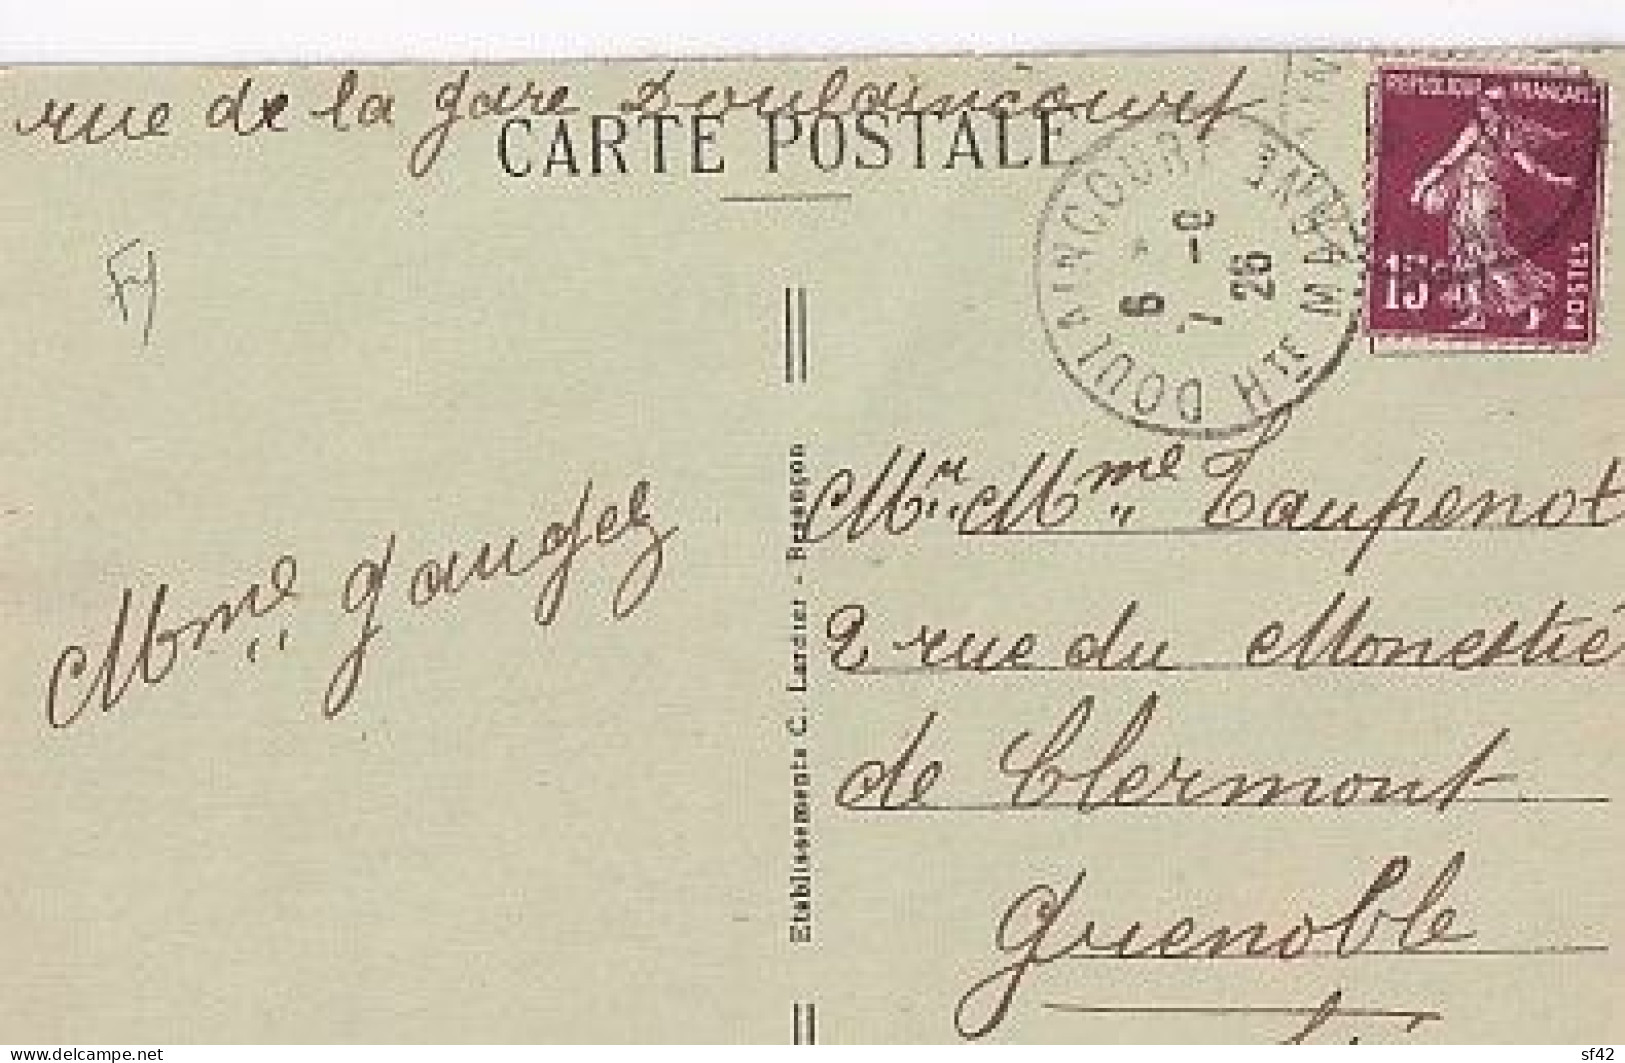 rue de la gare Doulaincourt
CARTE POSTALE
REPUBLIQUE FRANÇAISE
15
POSTES
DOULAINCOURT
6 - 8
7
26
HTE MARNE
Mr. Mme Taupenot
2 rue du Monestié
de Clermont
Grenoble
Mme Gaugez
Etablissements C. Lardier - Besançon
www.delcampe.net
sf42